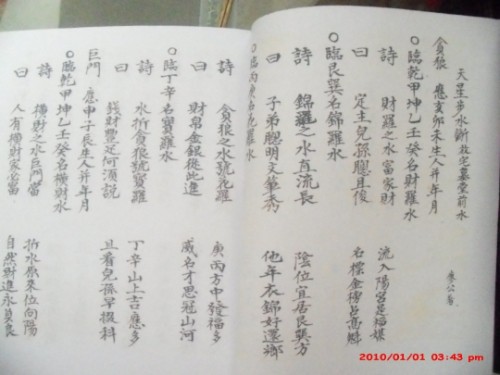 天星步水斷放宅墓堂前水
貪狼 應亥卯未生人并年月
〇臨乾甲坤乙壬癸名財羅水
詩 財羅之水富家財 流入陽宮是福媒
曰 定主兒孫聰且俊 名標金榜占高魁
〇臨艮巽名錦羅水
詩 錦羅之水直流長 陰位宜居艮巽方
曰 子弟聰明文筆秀 他年衣錦好還鄉
〇臨丙庚名花羅水
詩 貪狼之水號花羅 庚丙方中發福多
曰 財帛金銀從此進 威名才思冠山河
〇臨丁辛名寶羅水
詩 水折貪狼號寶羅 丁辛山上吉應多
曰 錢財豐足何須説 且看兒孫早掇科
巨門 應申子辰生人并年月
〇臨乾甲坤乙壬癸名橫財水
詩 橫財之水巨門當 折水原來位向陽
曰 人有橫財家必富 自然財進永貞良
2010/01/01 03:43 pm